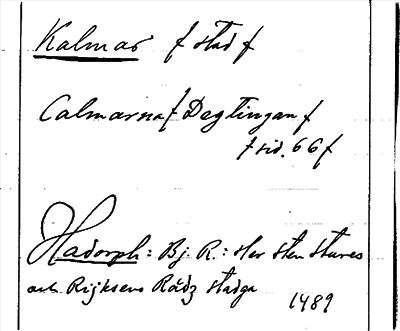 Kalmar f stad f
Calmarna f Degtingan f
f sid. 66 f
Hadorph: Bj. R.: Her Sten Stures
och Rijksens Rådz stadga
1489